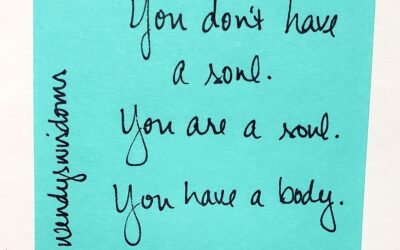 You don't have
a soul.
You are a soul.
You have a body.
wendyswisdoms